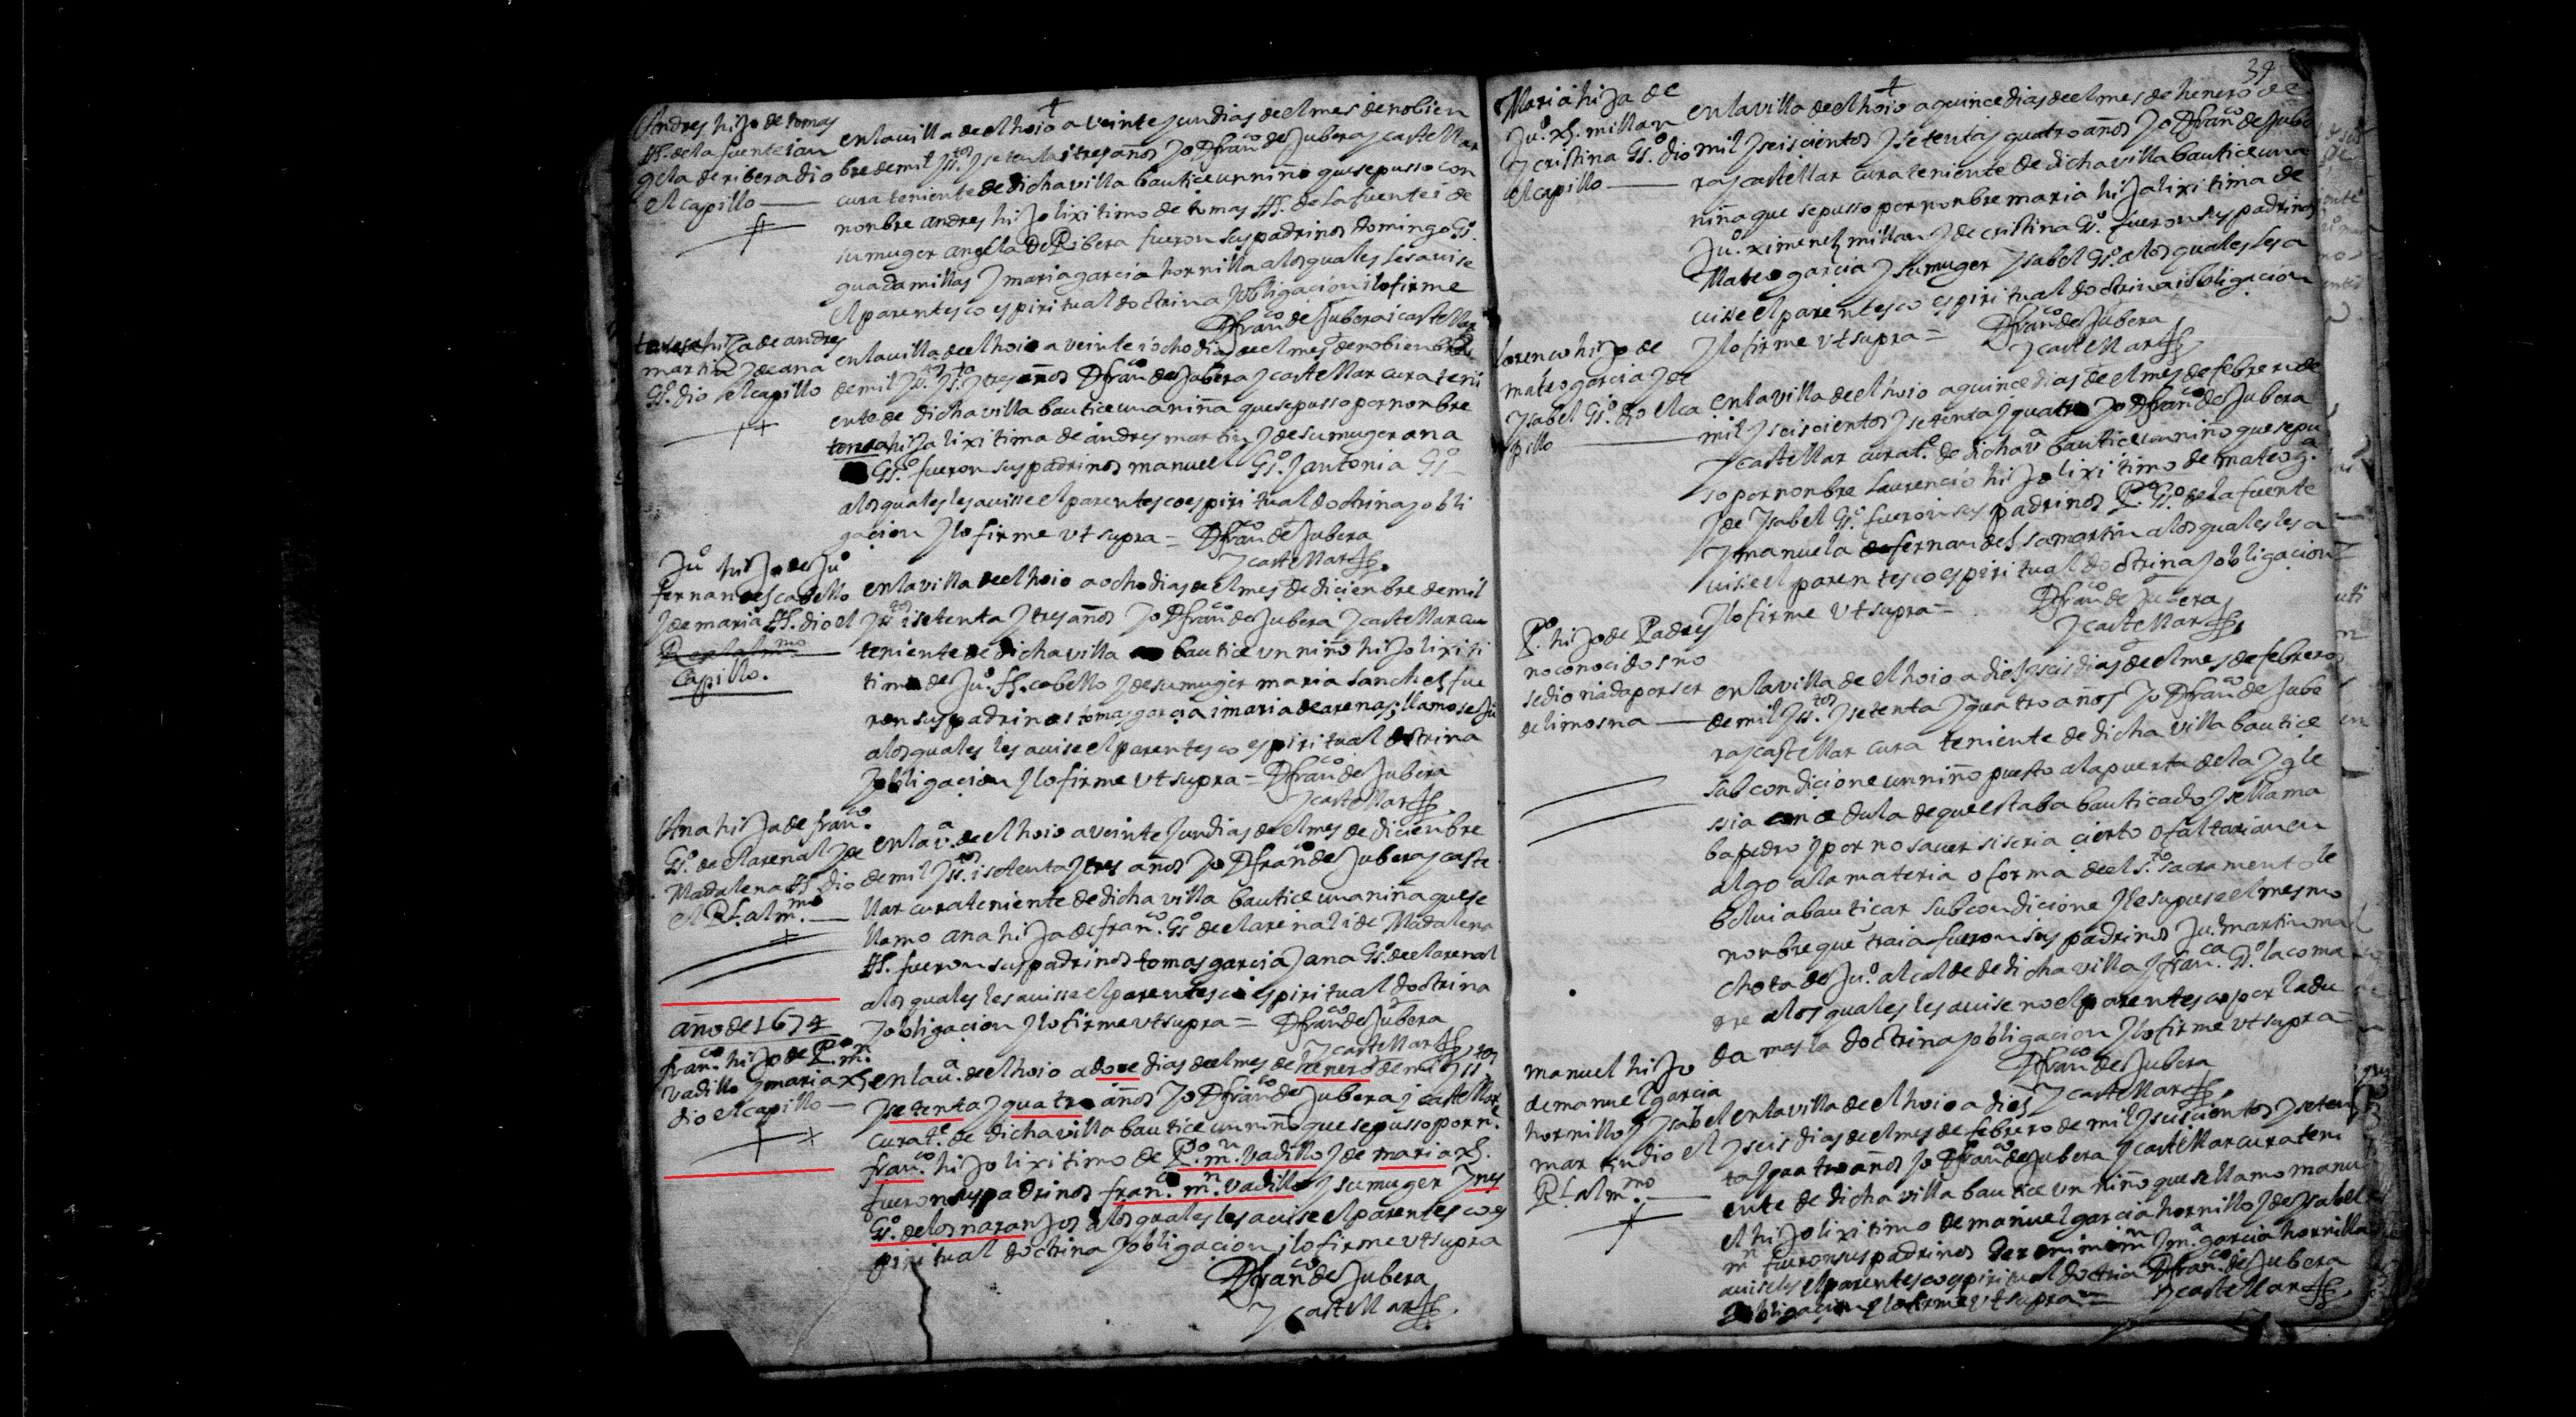 Andres hijo de tomas
ss. de la fuente i an
gela de ribera dio
el capillo
en la villa de el hoio a veinte y un dias de el mes de nobien
bre de mil y ss.tos y setenta i tres años yo D fran.co de Jubera y castellar
cura teniente de dicha villa bautice un niño que se pusso con
nonbre andres hijo lixitimo de tomas ss. de la fuente i de
su muger angela de Ribera fueron sus padrinos domingo Gs.o
guadamillas y maria garcia hornilla a los quales les auise
el parentesco espiritual doctrina y obligacion i lo firme
D fran.co de Jubera i castellar
teresa hija de andres
martin y de ana
Gs.o dio el capillo
en la villa de el hoio a veinte i ocho dias de el mes de nobienbre
de mil y ss.tos y s.ta y tres años D fran.co de Jubera y castellar cura teni
ente de dicha villa bautice una niña que se pusso por nonbre
teresa hija lixitima de andres martin y de su muger ana
Gs.o fueron sus padrinos manuel Gs.o y antonia Gs.o
a los quales les auisse el parentesco espiritual doctrina y obli
gacion y lo firme vt supra = D fran.co de Jubera
y castellar
Ju.o hijo de Ju.o
fernandes cabello
y de maria ss. dio el
Capillo.
en la villa de el hoio a ocho dias de el mes de dicienbre de mil
y ss.tos i setenta y tres años yo D fran.co de Jubera y castellar cu
teniente de dicha villa bautice vn niño hijo lixiti
timo de Ju.o ff. cabello y de su muger maria sanches fue
ron sus padrinos tomas garcia i maria de arenas; llamose Ju.o
a los quales les auise el parentesco espiritual dotrina
y obligacion y lo firme vt supra = D fran.co de Jubera
y castellar
Ana hija de fran.co
Gs.o de el arenal y de
Madalena ss. dio
el R.l al m.mo
en la v.a de el hoio a veinte y un dias de el mes de dicienbre
de mil y ss.tos i setenta y tres años yo D fran.co de Jubera y caste
llar cura teniente de dicha villa bautice una niña que se
llamo ana hija de fran.co Gs.o de el arenal i de Madalena
ss. fueron sus padrinos tomas garcia y ana Gs.o de el arenal
a los quales les auisse el parentesco espiritual doctrina
y obligacion y lo firme vt supra = D fran.co de Jubera
y castellar
año de 1674
fran.co hijo de P.o m.n
vadillo y maria xs.
dio el capillo
en la v.a de el hoio a doce dias de el mes de henero de mil y ss.tos
y setenta y quatro años yo D fran.co de Jubera y castellar
cura t.e de dicha villa bautice un niño que se pusso por n.e
fran.co hijo lixitimo de P.o m.n vadillo y de maria xs.
fueron sus padrinos fran.co m.n vadillo y su muger ynes
Gs.o de los naranjos a los quales les auise el parentesco es
piritual doctrina y obligacion i lo firme vt supra
D fran.co de Jubera
y castellar
39
Maria hija de
Ju.o xs. millan
y cristina Gs.o dio
el capillo
en la villa de el hoio a quince dias de el mes de henero de
mil y seiscientos y setenta y quatro años yo D fran.co de Jube
ra y castellar cura teniente de dicha villa bautice una
niña que se pusso por nonbre maria hija lixitima de
Ju.o ximenes millan y de cristina Gs.o fueron sus padrinos
Mateo garcia y su muger ysabel Gs.o a los quales les a
uisse el parentesco espiritual doctrina i obligacion
y lo firme vt supra = D fran.co de Jubera
y castellar
lorenco hijo de
mateo garcia y de
ysabel Gs.o dio el ca
pillo
en la villa de el hoio a quince dias de el mes de febrero de
mil y seiscientos y setenta y quatro yo D fran.co de Jubera
y castellar cura t.e de dicha v.a bautice un niño que se pu
so por nonbre laurencio hijo lixitimo de mateo g.a
y de ysabel Gs.o fueron sus padrinos P.o Gs.o de la fuente
y manuela de fernandes samartin a los quales les a
uise el parentesco espiritual doctrina y obligacion
y lo firme vt supra = D fran.co de Jubera
y castellar
P.o hijo de Padres
no conocidos no
se dio nada por ser
de limosna
en la villa de el hoio a dies y seis dias de el mes de febrero
de mil y ss.tos y setenta y quatro años yo D fran.co de Jube
ra y castellar cura teniente de dicha villa bautice
sub condicione un niño puesto a la puerta de la ygle
ssia con cedula de que estaba bauticado y se llama
ba pedro y por no sauer si seria cierto o faltarian en
algo a la materia o forma de el s.to sacramento le
bolui a bauticar sub condicione y le supuse el mesmo
nonbre que traia fueron sus padrinos Ju.o martin ma
chota de Ju.o alcalde de dicha villa y fran.ca Gs.o la coma
dre a los quales les auise no el parentesco por la du
da mas la doctrina y obligacion y lo firme vt supra =
D fran.co de Jubera
y castellar
manuel hijo
de manuel garcia
hornillo y ysabel
martin dio el
R.l al m.mo
en la villa de el hoio a dies
y seis dias de el mes de febrero de mil y seiscientos y seten
ta y quatro años yo D fran.co de Jubera y castellar cura teni
ente de dicha villa bautice vn niño que se llamo manu
el hijo lixitimo de manuel garcia hornillo y de ysabel
m.n fueron sus padrinos Jeronimo m.n y m.a garcia hornilla
auiseles el parentesco espiritual doctria D fran.co de Jubera
y obligacion y lo firme vt supra = y castellar